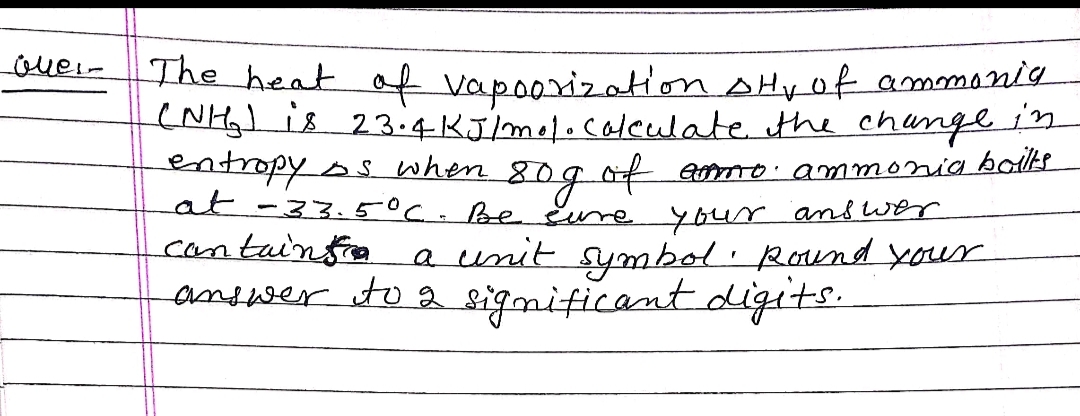 Ques- The heat of vapoorization ΔHv of ammonia
(NH3) is 23.4 KJ/mol. Calculate the change in
entropy Δs when 80g of ammonia boilts
at -33.5°C. Be sure your answer
contains a unit symbol. Round your
answer to 2 significant digits.